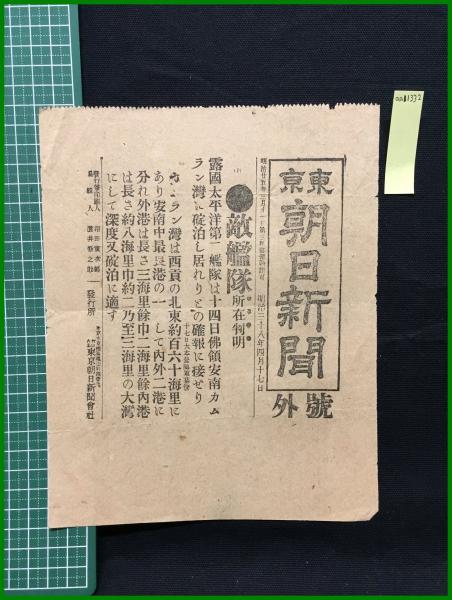 東京
朝日新聞
號外
明治三十八年四月十七日
敵艦隊所在判明
露國太平洋第一艦隊は十四日佛領安南カム
ラン灣に碇泊し居れりとの確報に接せり
ラン灣は西貢の北東約百六十海里に
あり安南中最良港の一として内外二港に
分れ外港は長さ三海里餘巾二海里餘内港
は長さ約八海里巾約二乃至三海里の大灣
にして深度又碇泊に適す
發行所
東京朝日新聞會社
aa11332